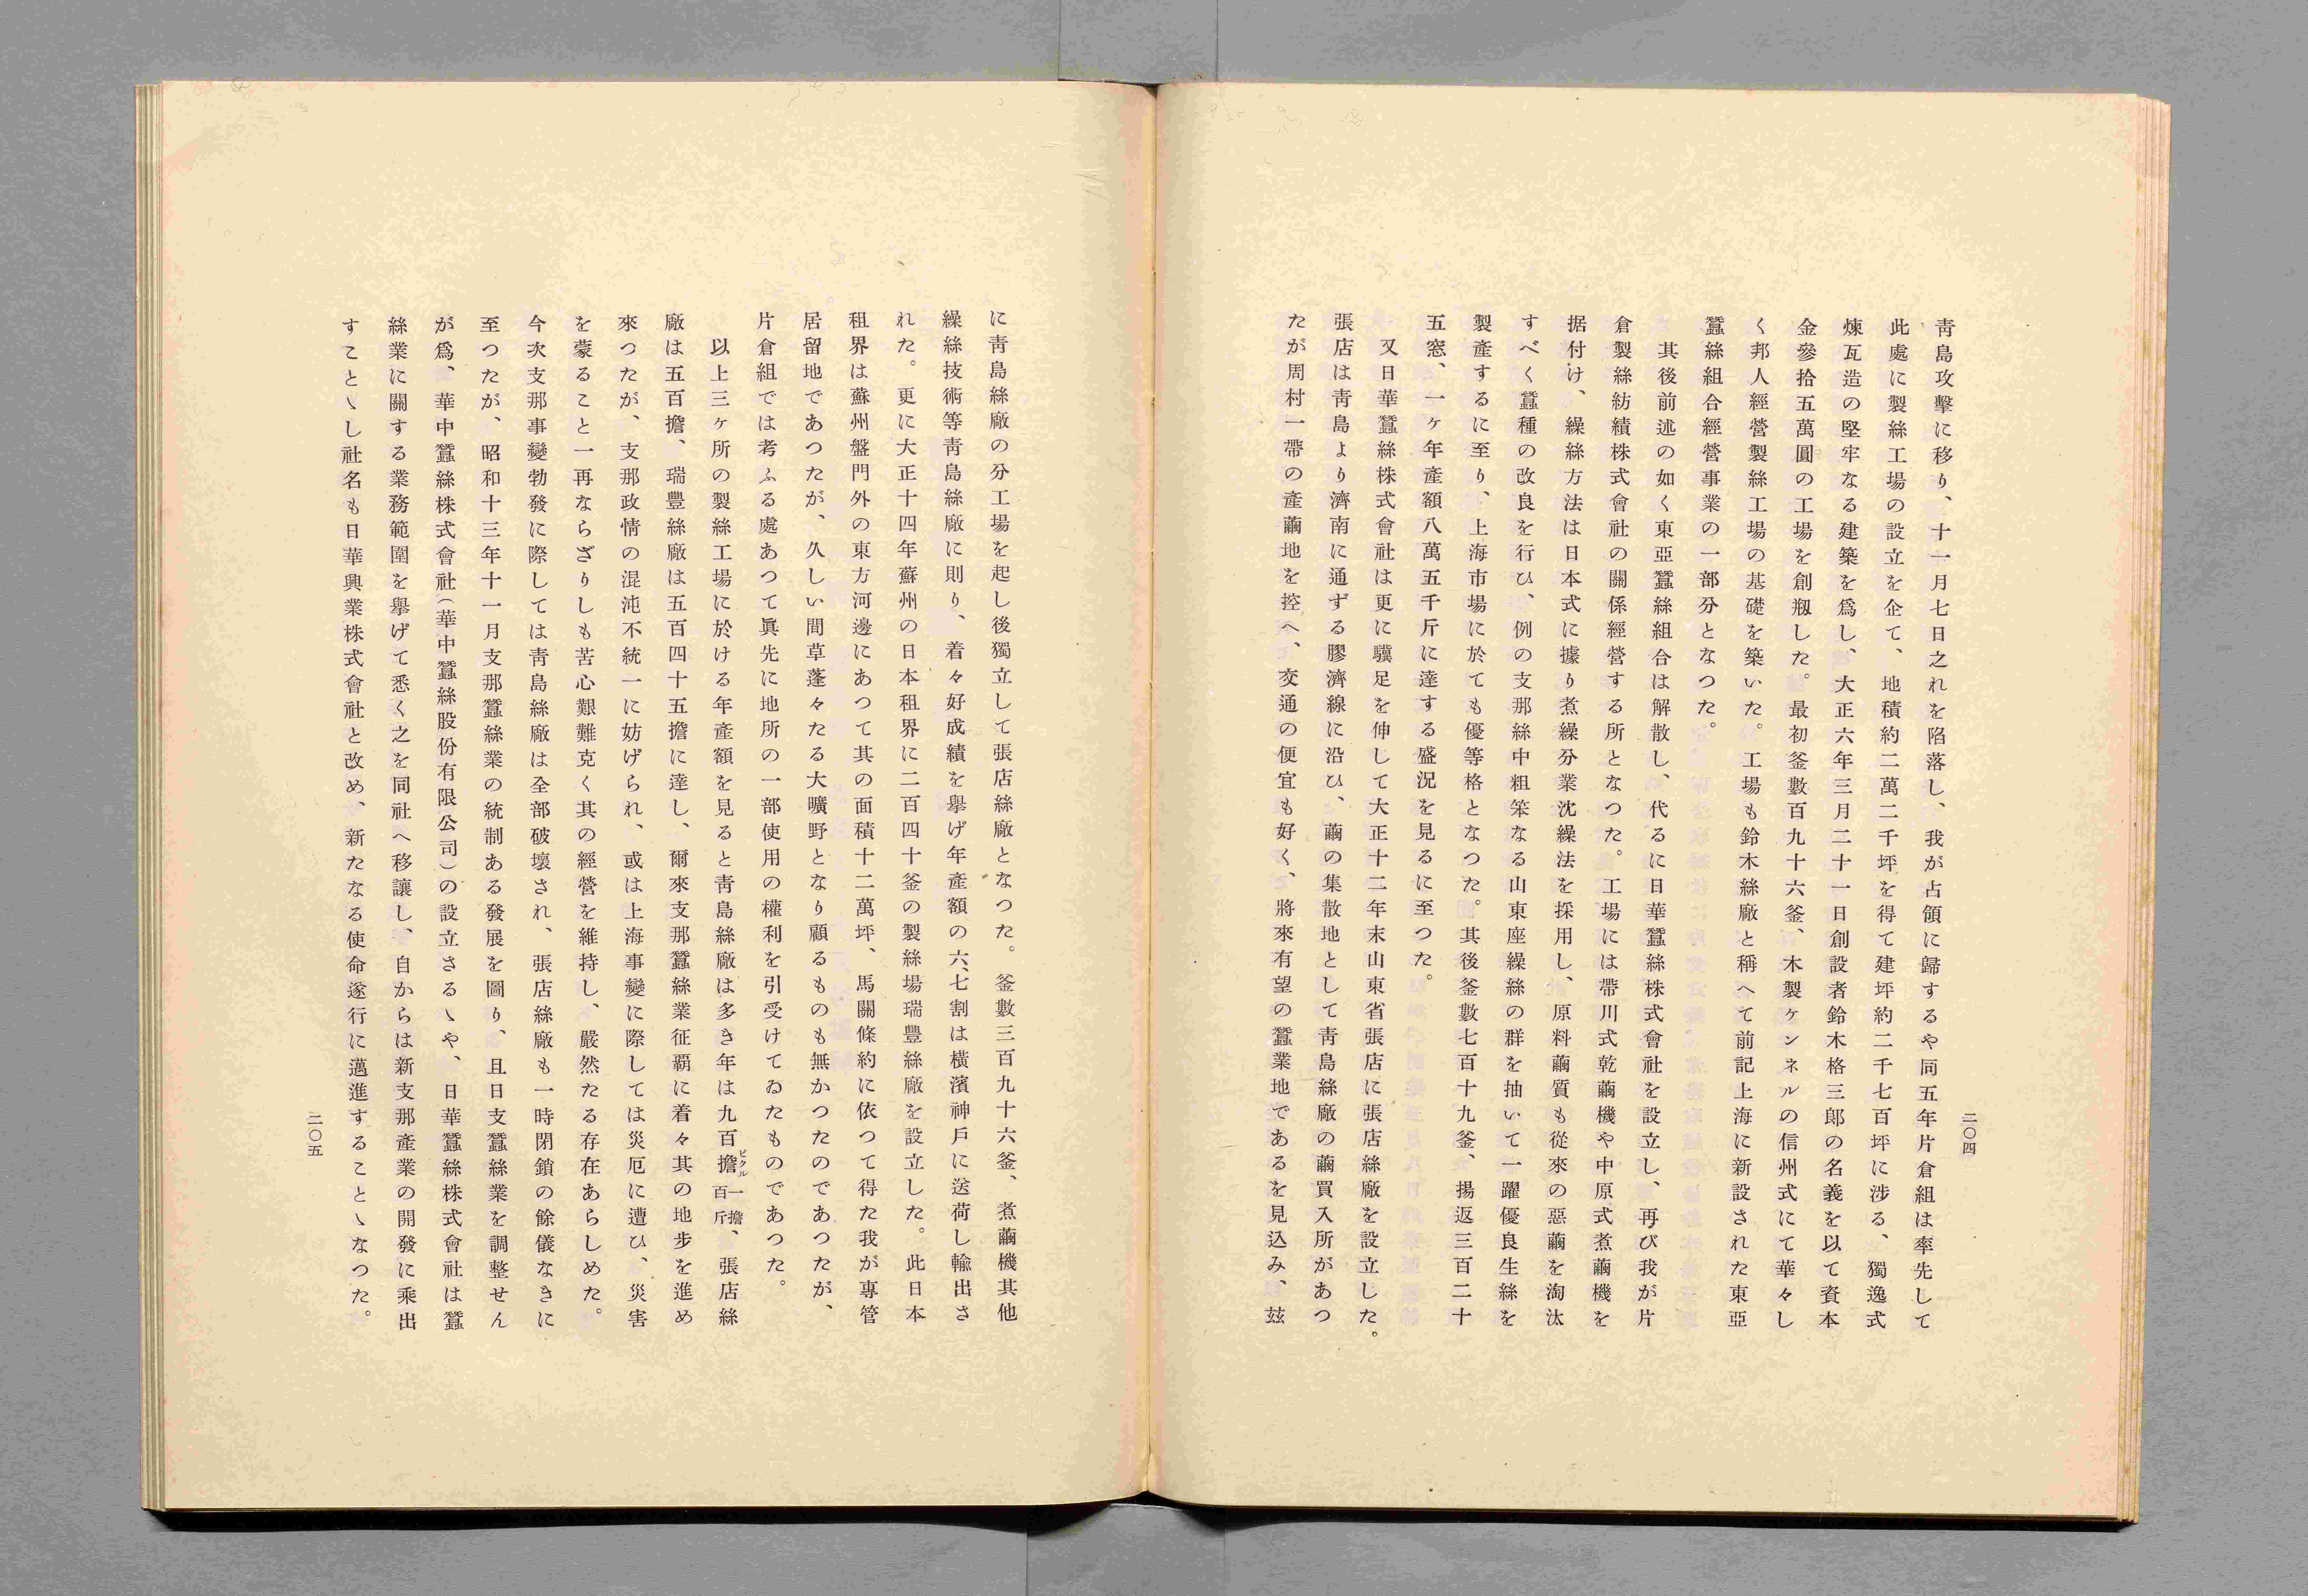 二〇四
靑島攻擊に移り、十一月七日之れを陷落し、我が占領に歸するや同五年片倉組は率先して
此處に製絲工場の設立を企て、地積約二萬二千坪を得て建坪約二千七百坪に涉る、獨逸式
煉瓦造の堅牢なる建築を爲し、大正六年三月二十一日創設者鈴木格三郞の名義を以て資本
金參拾五萬圓の工場を創剏した。最初釜數百九十六釜、木製ケンネルの信州式にて華々し
く邦人經營製絲工場の基礎を築いた。工場も鈴木絲廠と稱へて前記上海に新設された東亞
蠶絲組合經營事業の一部分となつた。
其後前述の如く東亞蠶絲組合は解散し、代るに日華蠶絲株式會社を設立し、再び我が片
倉製絲紡績株式會社の關係經營する所となつた。工場には帶川式乾繭機や中原式煮繭機を
据付け、繰絲方法は日本式に據り煮繰分業沈繰法を採用し、原料繭質も從來の惡繭を淘汰
すべく蠶種の改良を行ひ、例の支那絲中粗笨なる山東座繰絲の群を抽いて一躍優良生絲を
製產するに至り、上海市場に於ても優等格となつた。其後釜數七百十九釜、揚返三百二十
五窓、一ヶ年產額八萬五千斤に達する盛況を見るに至つた。
又日華蠶絲株式會社は更に驥足を伸して大正十二年末山東省張店に張店絲廠を設立した。
張店は靑島より濟南に通ずる膠濟線に沿ひ、繭の集散地として靑島絲廠の繭買入所があつ
たが周村一帶の產繭地を控へ、交通の便宜も好く、將來有望の蠶業地であるを見込み、玆
に靑島絲廠の分工場を起し後獨立して張店絲廠となつた。釜數三百九十六釜、煮繭機其他
繰絲技術等靑島絲廠に則り、着々好成績を擧げ年產額の六、七割は橫濱神戶に送荷し輸出さ
れた。更に大正十四年蘇州の日本租界に二百四十釜の製絲場瑞豐絲廠を設立した。此日本
租界は蘇州盤門外の東方河邊にあつて其の面積十二萬坪、馬關條約に依つて得た我が專管
居留地であつたが、久しい間草蓬々たる大曠野となり顧るものも無かつたのであつたが、
片倉組では考ふる處あつて眞先に地所の一部使用の權利を引受けてゐたものであつた。
以上三ヶ所の製絲工場に於ける年產額を見ると靑島絲廠は多き年は九百擔ピクル一擔百斤、張店絲
廠は五百擔、瑞豐絲廠は五百四十五擔に達し、爾來支那蠶絲業征覇に着々其の地步を進め
來つたが、支那政情の混沌不統一に妨げられ、或は上海事變に際しては災厄に遭ひ、災害
を蒙ること一再ならざりしも苦心艱難克く其の經營を維持し、嚴然たる存在あらしめた。
今次支那事變勃發に際しては靑島絲廠は全部破壞され、張店絲廠も一時閉鎖の餘儀なきに
至つたが、昭和十三年十一月支那蠶絲業の統制ある發展を圖り、且日支蠶絲業を調整せん
が爲、華中蠶絲株式會社(華中蠶絲股份有限公司)の設立さるゝや、日華蠶絲株式會社は蠶
絲業に關する業務範圍を擧げて悉く之を同社へ移讓し、自からは新支那產業の開發に乘出
すことゝし社名も日華興業株式會社と改め、新たなる使命遂行に邁進することゝなつた。
二〇五